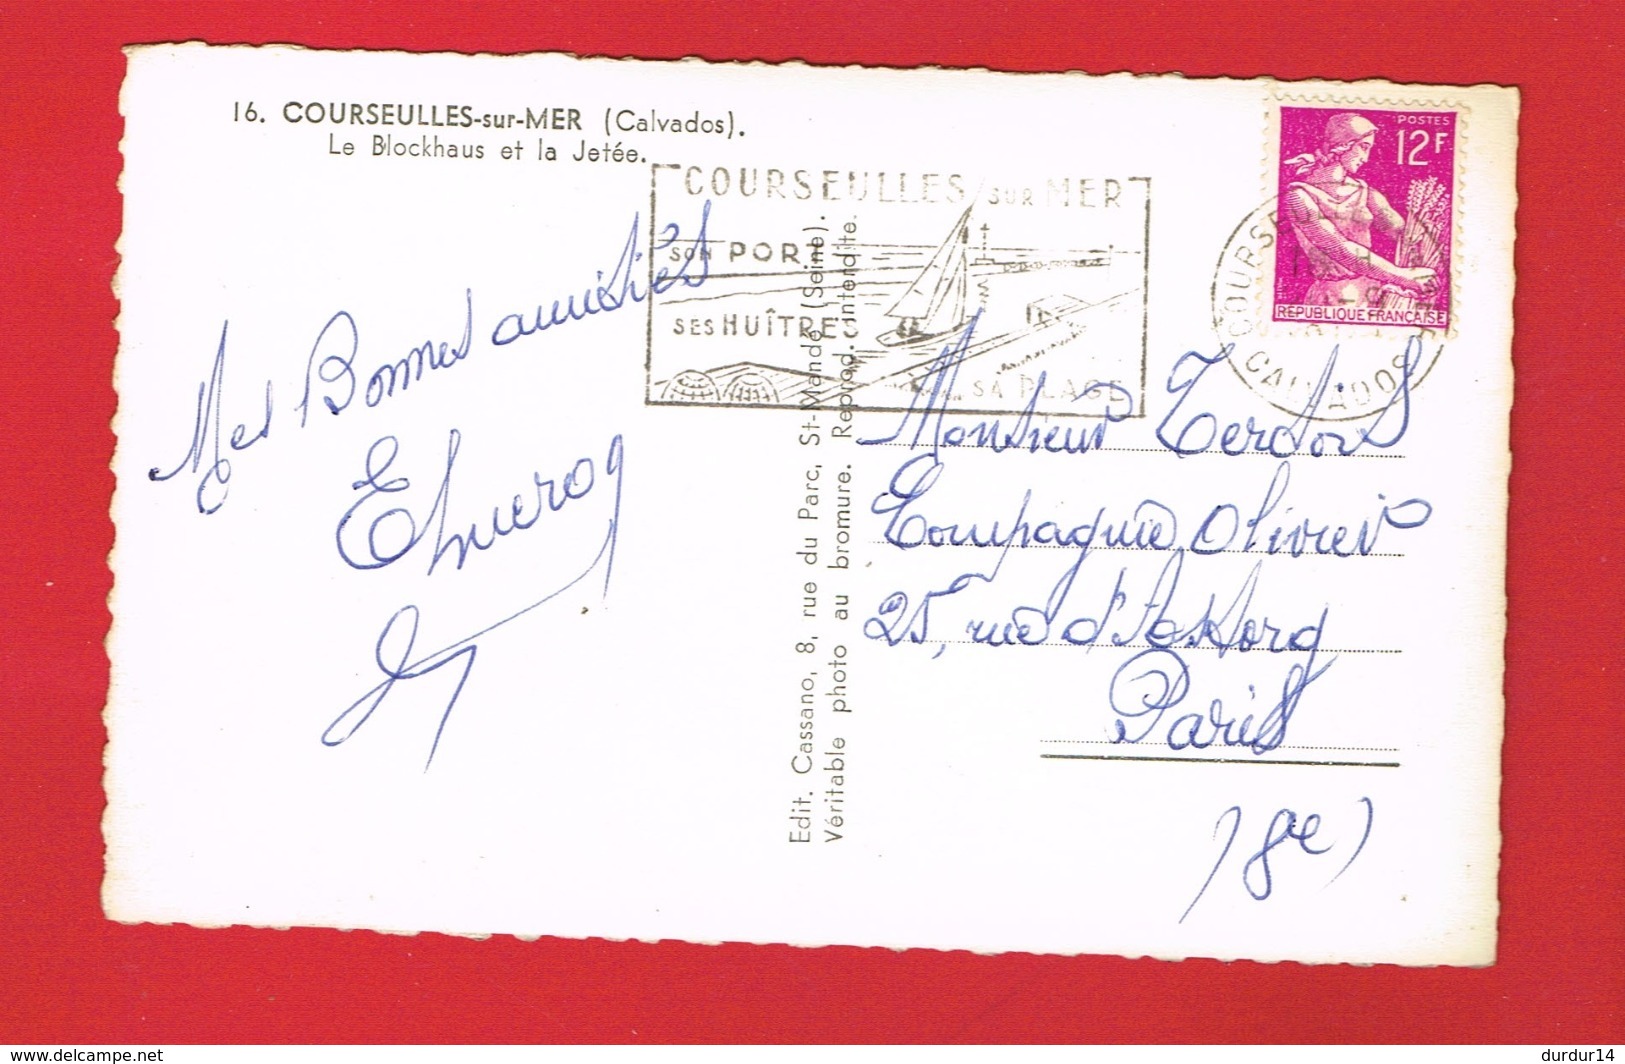 16. COURSEULLES-sur-MER (Calvados).
Le Blockhaus et la Jetée.
COURSEULLES sur MER
SON PORT
SES HUÎTRES
SA PLAGE
POSTES
12F
REPUBLIQUE FRANÇAISE
COURSEULLES
CALVADOS
Mes Bonnes amitiés
Edit. Cassano, 8, rue du Parc, St-Mandé (Seine).
Véritable photo au bromure. Reprod. interdite.
Monsieur
Compagnie Olivier
25, rue d'Astorg
Paris
(8e)
www.delcampe.net
durdur14